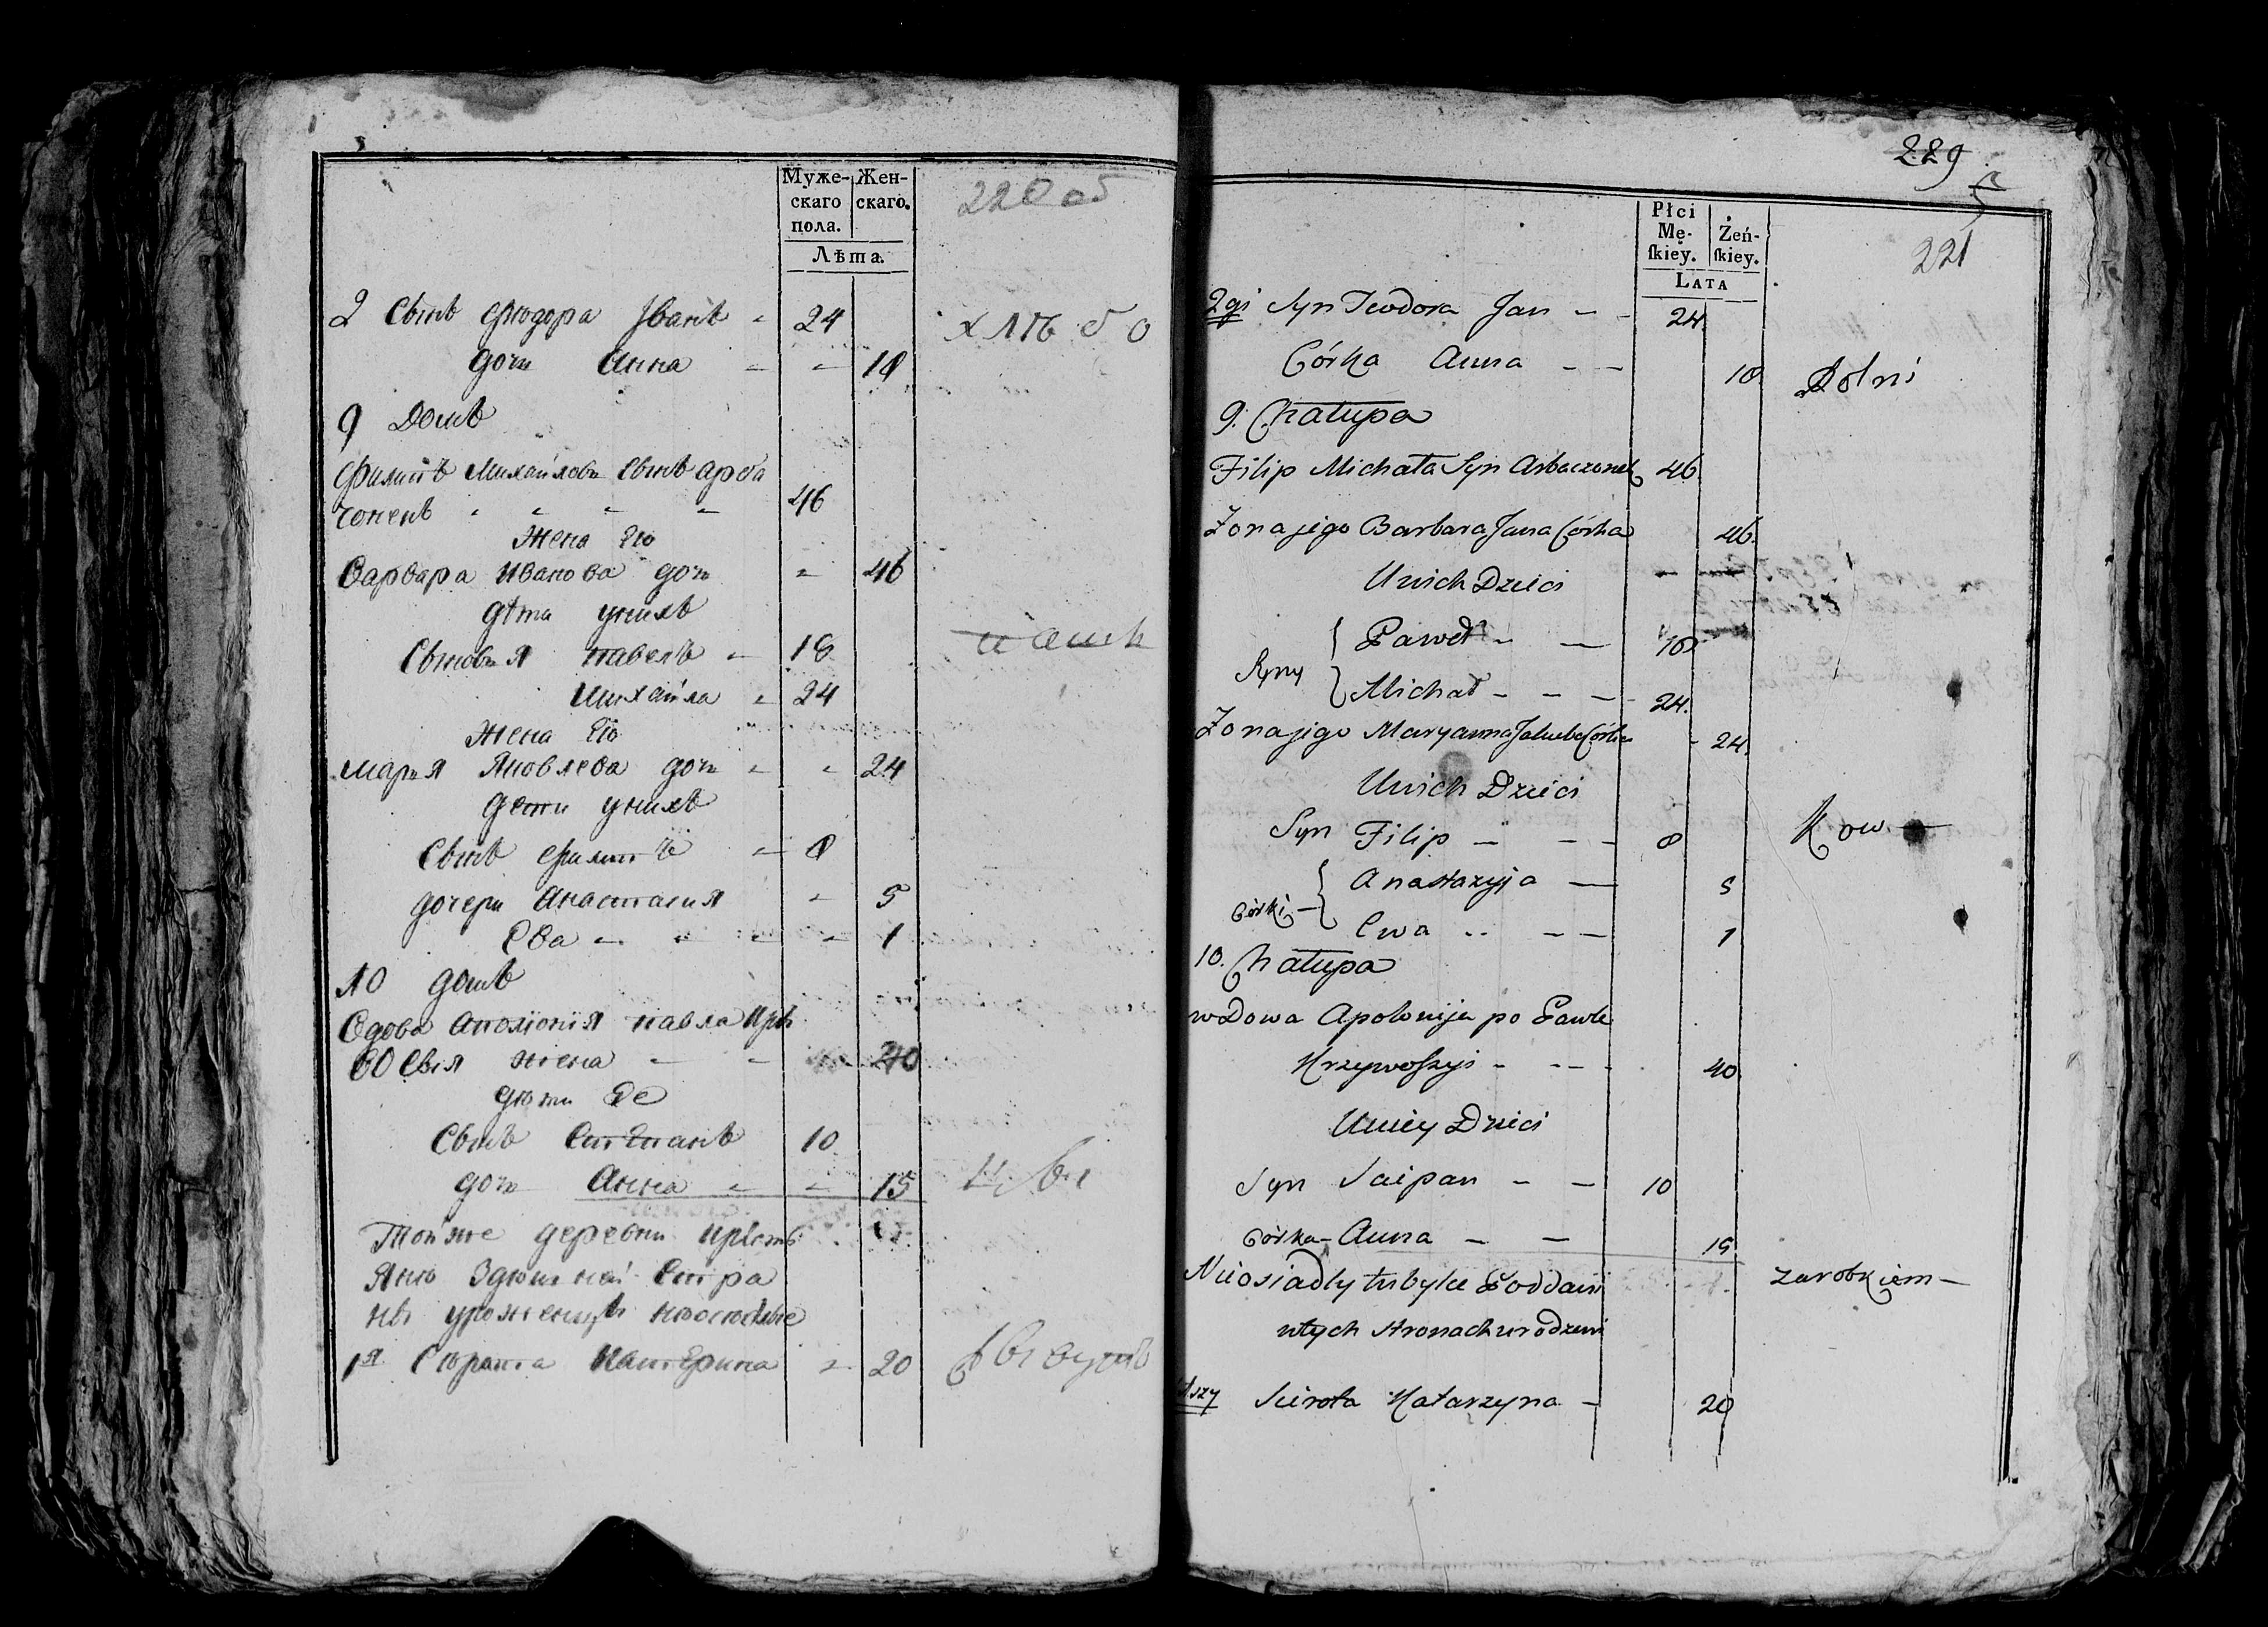 Муже-
скаго
пола.
Жен-
скаго.
Лѣта.
220 об
2 Сынъ Фюдора Иванъ 24
дочь Анна 10
хлѣбо
9 Домъ
Филипъ Михайловъ Сынъ Арба
чонекъ 46
Жена Его
Варвара Иванова дочь 46
дѣти унихъ
Сыновья павелъ 18
Михайла 24
Жена Его
Марья Яковлева дочь 24
дети унихъ
Сынъ Филипъ 8
дочери Анастасия 5
Ева 1
10 домъ
Вдова Аполіонія павла Кри
воСыя жена 40
дюти Ее
Сынъ Степанъ 10
дочь Анна 15
Тойже деревни
Здюшней Стра
ны уроженцы
1я Сюрота Катерина 20
229
221
Płci
Mę-
ſkiey.
Żeń-
ſkiey.
LATA
2gi Syn Teodora Jan 24
Córka Anna 10
Rolni
9. Chałupa
Filip Michała Syn Arbaczonek 46
Zona jego Barbara Jana Córka 46
Unich Dzieci
Syny
Paweł 18
Michał 24.
Zona jego Maryanna Jakuba Córka 24
Unich Dzieci
Syn Filip 8
Kow
Córki
Anastazyja 5
Ewa 1
10. Chałupa
wDowa Apolonija po Pawle
Krzywoszyi 40
Uniey Dzieci
Syn Sciepan 10
Córka Anna 15
Nieosiadły tubylce Poddani
wtych stronach urodzeni
zarobkiem
1szy Scierota Katarzyna 20